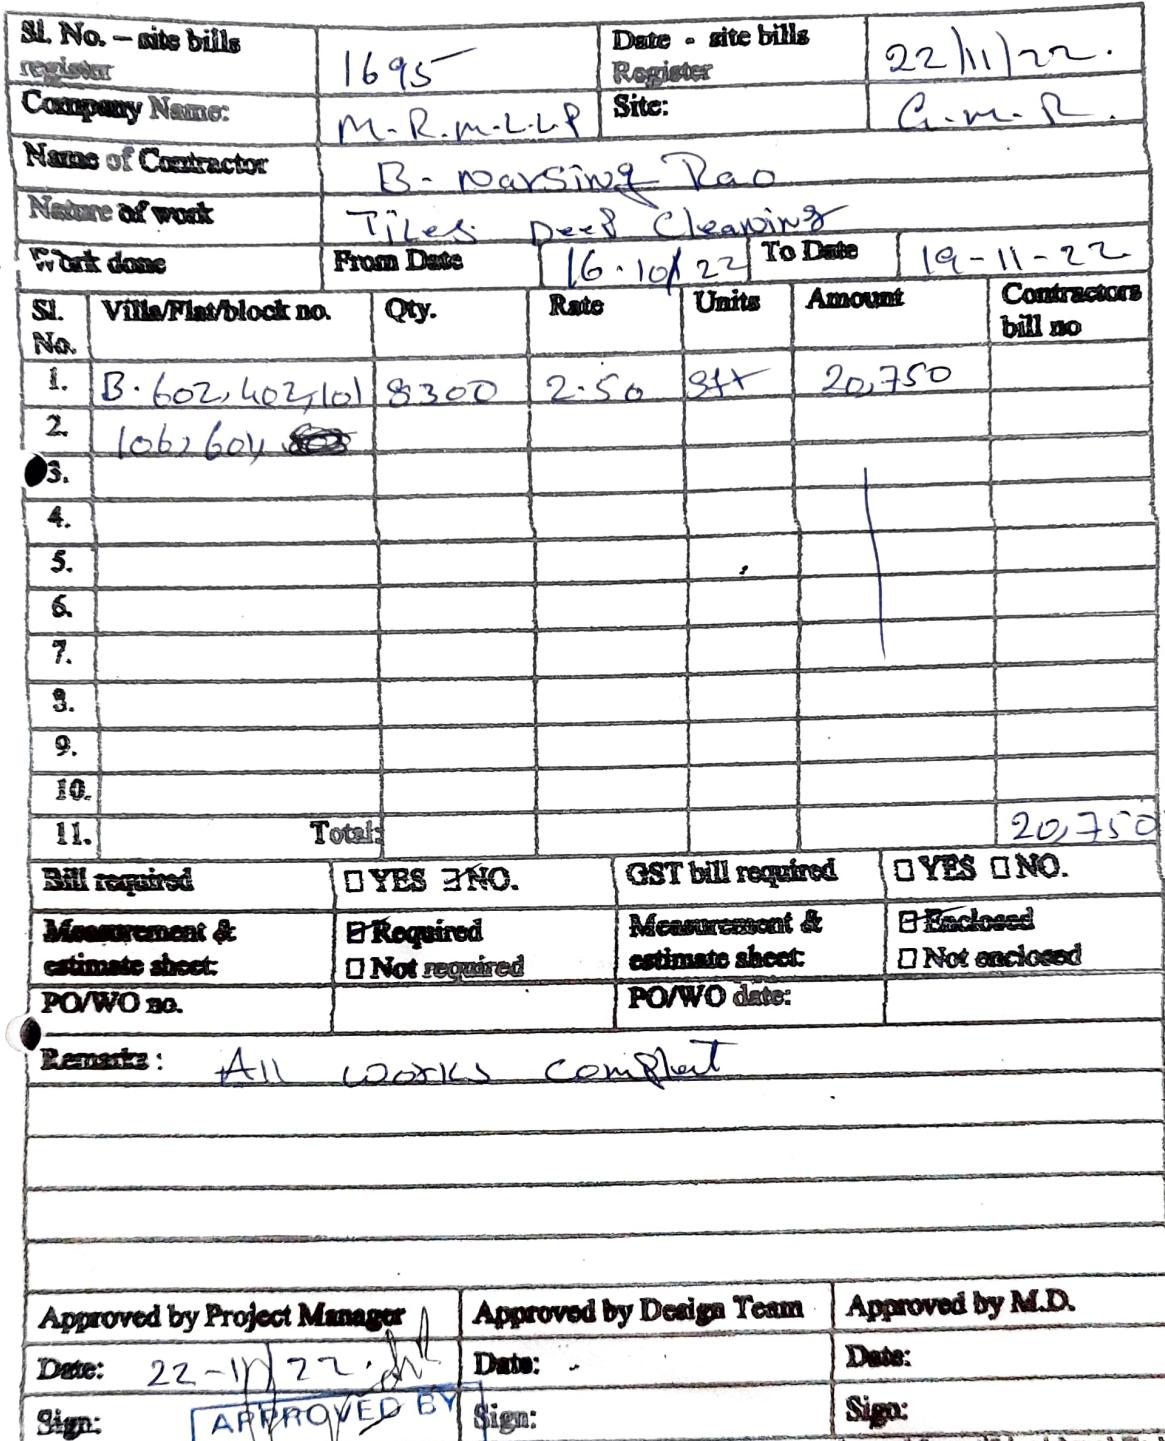 Sl. No. – site bills register 1695 Date - site bills Register 22/11/22.
Company Name: M.R.M.L.L.P Site: G.M.R.
Name of Contractor B. Narsing Rao
Nature of work Tiles Deep Cleaning
Work done From Date 16.10/22 To Date 19-11-22
Sl. No. Villa/Flat/block no. Qty. Rate Units Amount Contractors bill no
1. B.602,402,101 8300 2.50 Sft 20,750
2. 106,601,
3.
4.
5.
6.
7.
8.
9.
10.
11. Total: 20,750
Bill required ☐ YES ☑ NO. GST bill required ☐ YES ☐ NO.
Measurement & estimate sheet: ☑ Required ☐ Not required Measurement & estimate sheet: ☑ Enclosed ☐ Not enclosed
PO/WO no. PO/WO date:
Remarks: All works complet
Approved by Project Manager Approved by Design Team Approved by M.D.
Date: 22-11/22. Date: Date:
Sign: APPROVED BY Sign: Sign: